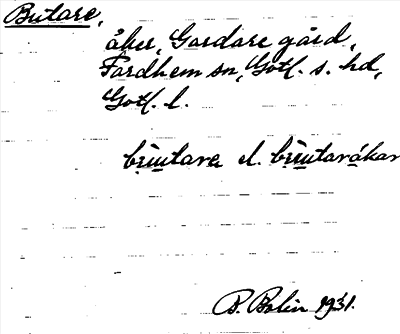 Butare,
åker, Gardare gård,
Fardhem sn, Gotl. s. hd,
Gotl. l.
el.
B. Bolin 1931.